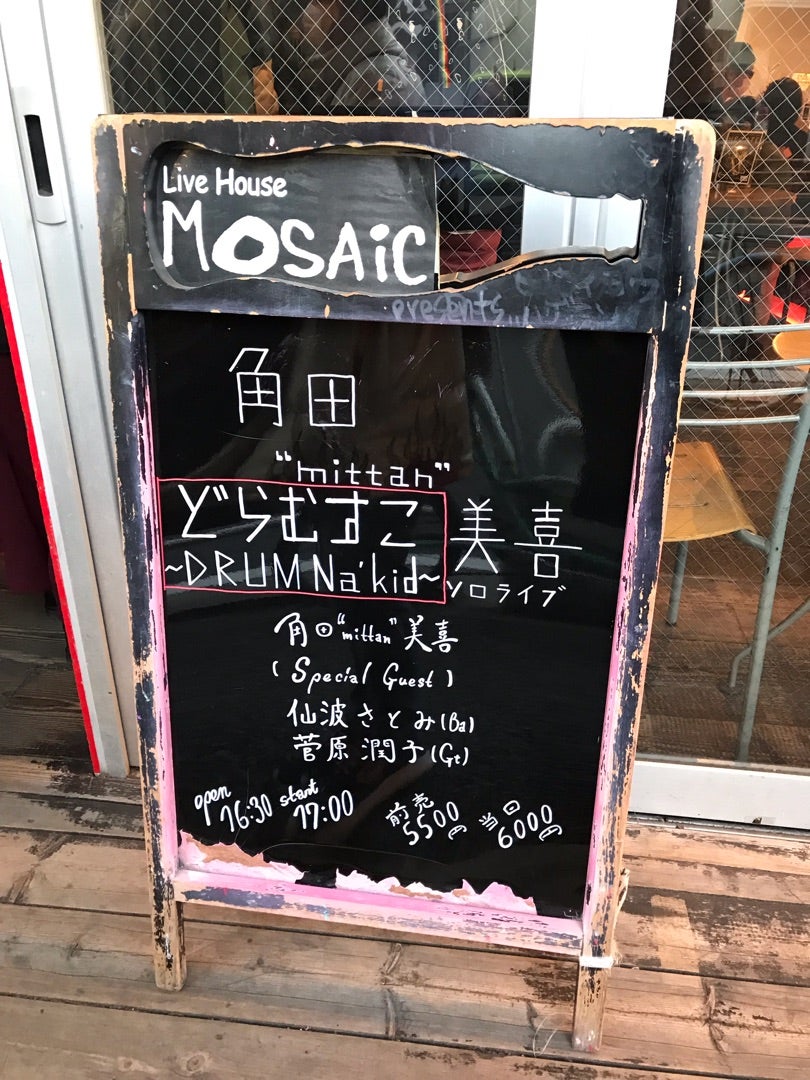 Live House
MOSAiC
presents
角田
"mittan"
どらむすこ
~DRUM Na'kid~
美喜
ソロライブ
角田"mittan"美喜
(Special Guest)
仙波さとみ(Ba)
菅原潤子(Gt)
open 16:30 start 17:00
前売 5500円 当日 6000円